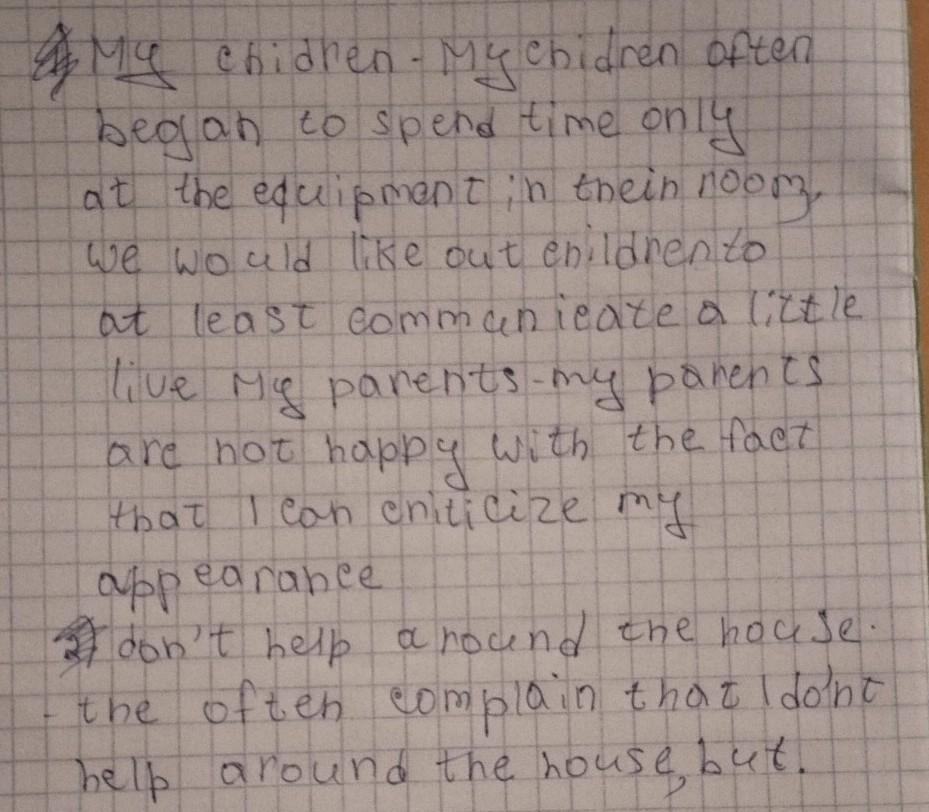 My chidren - My chidren often
began to spend time only
at the equipment in their room,
we would like out children to
at least communicate a little
live My parents - my parents
are not happy with the fact
that I can criticize my
appearance
I don't help around the house.
- the often complain that I do'nt
help around the house, but.